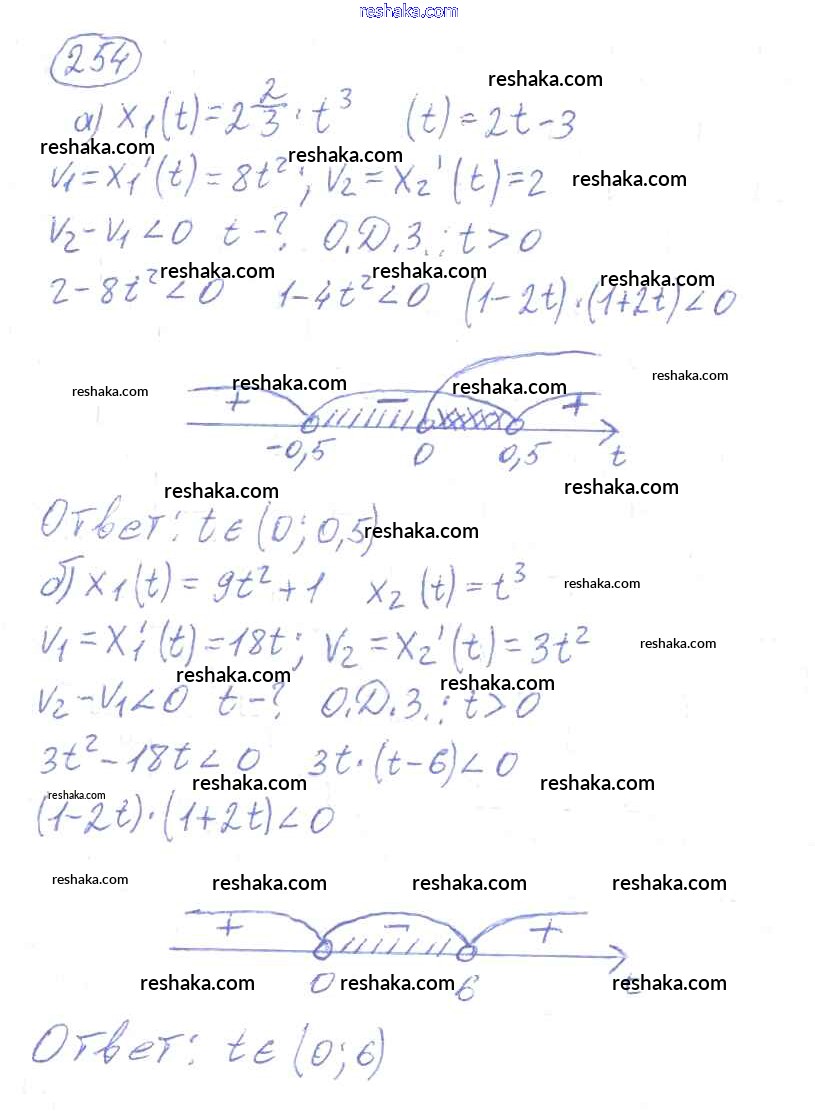 reshaka.com
254
reshaka.com
а) x₁(t) = 2 2/3 · t³   (t) = 2t - 3
reshaka.com reshaka.com
v₁ = x₁'(t) = 8t²; v₂ = x₂'(t) = 2 reshaka.com
v₂ - v₁ < 0   t - ?   О.Д.З.: t > 0
reshaka.com reshaka.com reshaka.com
2 - 8t² < 0   1 - 4t² < 0   (1 - 2t) · (1 + 2t) < 0
reshaka.com reshaka.com reshaka.com reshaka.com
+ − +
-0,5 0 0,5 t
reshaka.com reshaka.com
Ответ: t ∈ (0; 0,5) reshaka.com
б) x₁(t) = 9t² + 1   x₂(t) = t³ reshaka.com
v₁ = x₁'(t) = 18t; v₂ = x₂'(t) = 3t² reshaka.com
reshaka.com reshaka.com
v₂ - v₁ < 0   t - ?   О.Д.З.: t > 0
3t² - 18t < 0   3t · (t - 6) < 0
reshaka.com reshaka.com reshaka.com
(1 - 2t) · (1 + 2t) < 0
reshaka.com reshaka.com reshaka.com reshaka.com
+ − +
0 6 t
reshaka.com reshaka.com reshaka.com
Ответ: t ∈ (0; 6)